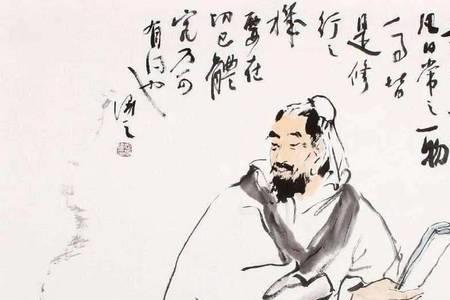 凡日常之一物
一事皆
是修
行之
機
要在
切己體
究乃可
有得也